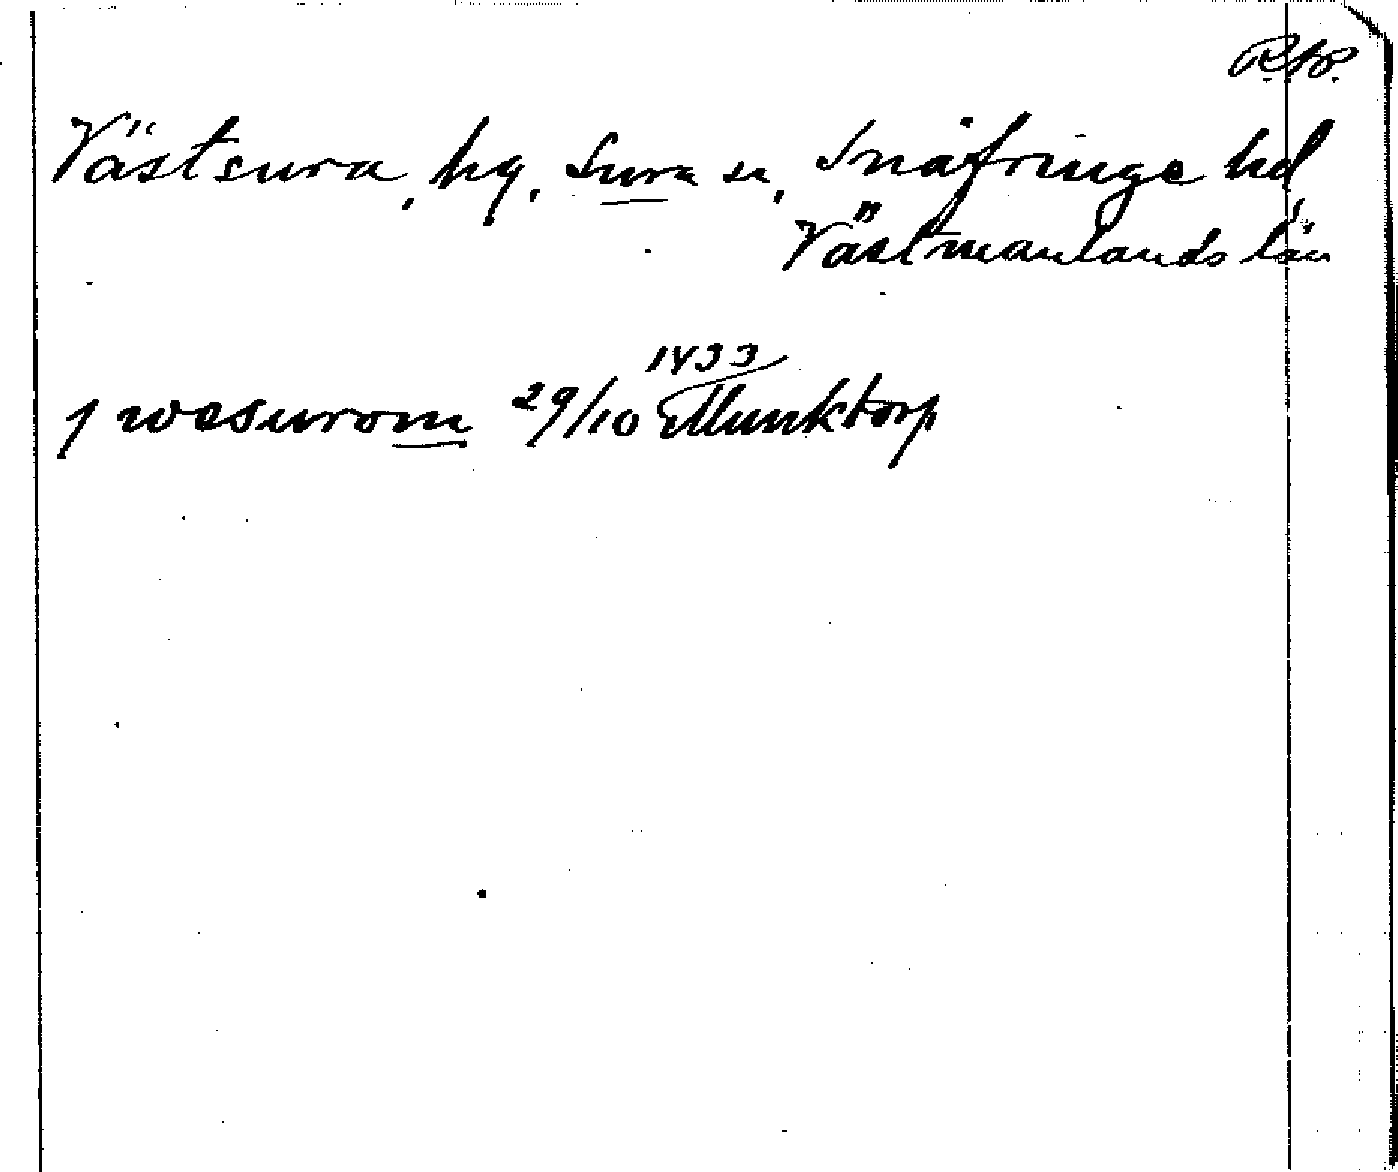 RAP.
Västsura, hg, Sura sn, Snäfringe hd,
Västmanlands län
j wesurom 29/10 1433 Munktorp